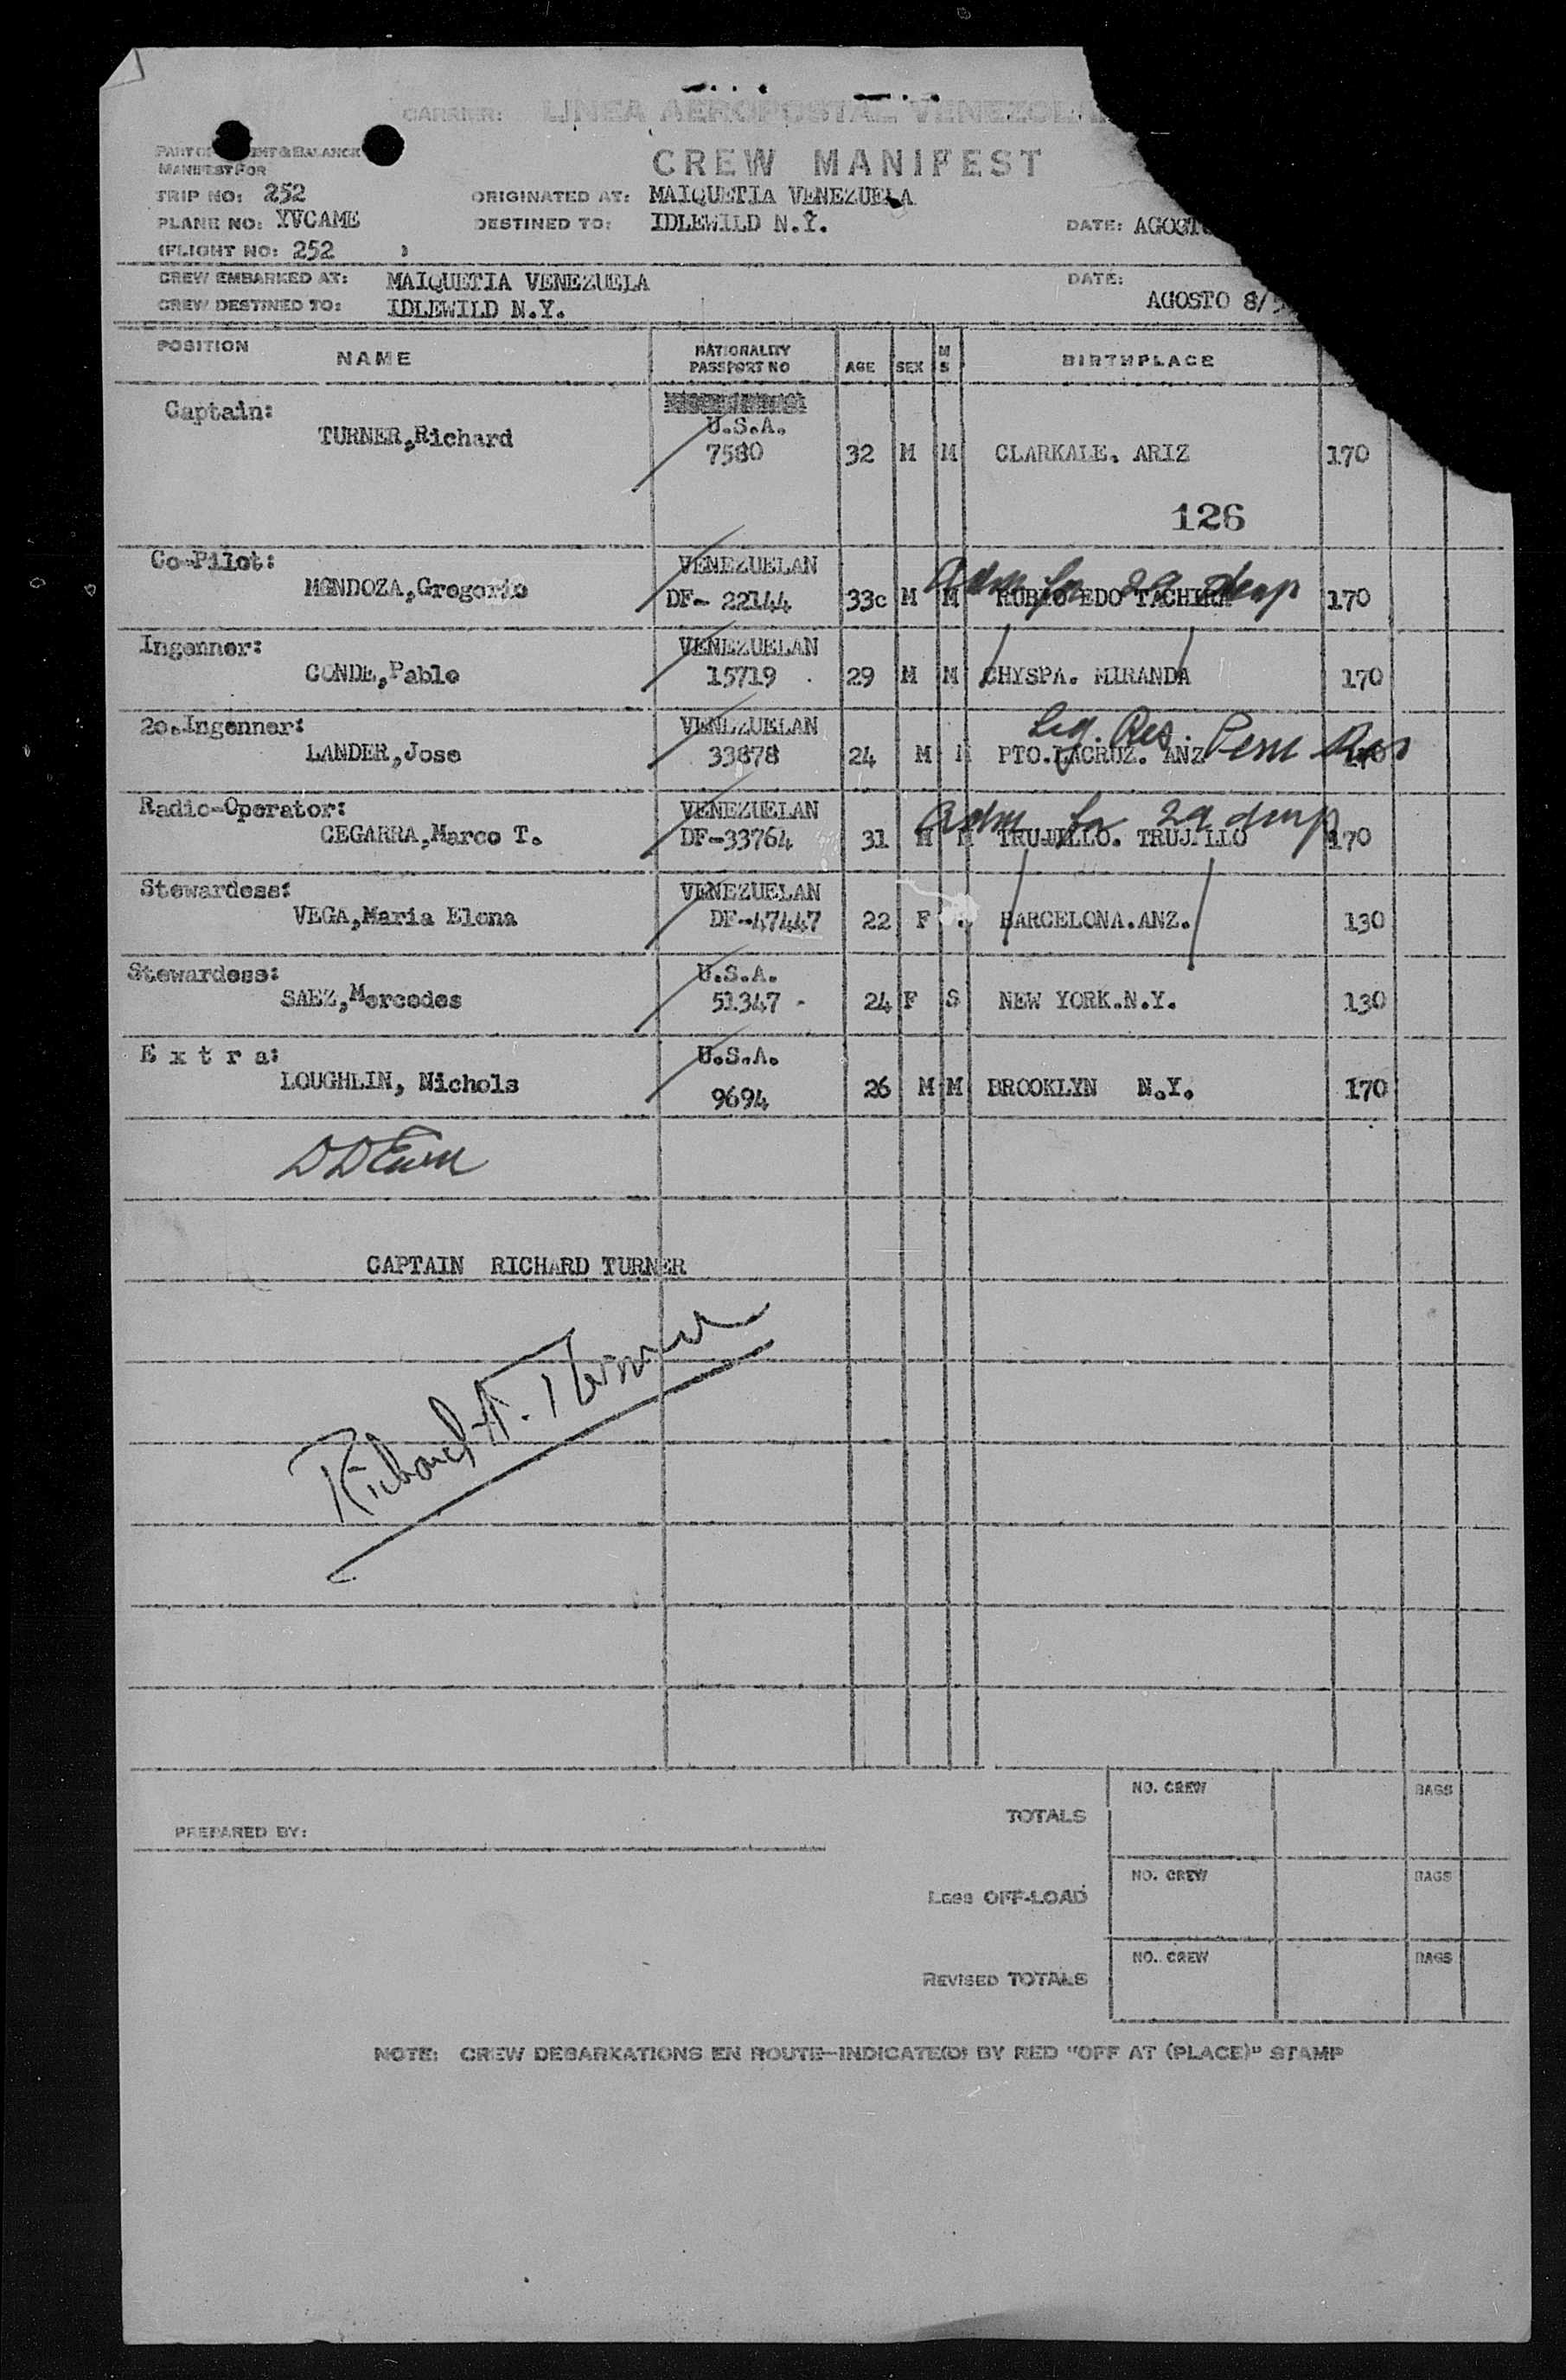 CARRIER: LINEA AEROPOSTAL
PART OF & BALANCE
MANIFEST FOR
CREW MANIFEST
TRIP NO: 252 ORIGINATED AT: MAIQUETIA VENEZUELA
PLANE NO: YVCAME DESTINED TO: IDLEWILD N.Y. DATE:
(FLIGHT NO: 252 )
CREW EMBARKED AT: MAIQUETIA VENEZUELA DATE:
CREW DESTINED TO: IDLEWILD N.Y. AGOSTO 8/
POSITION NAME NATIONALITY PASSPORT NO AGE SEX M S BIRTHPLACE
Captain:
U.S.A.
TURNER,Richard 7580 32 M M CLARKALE. ARIZ 170
126
Co-Pilot: VENEZUELAN Adm for 29 days
MENDOZA,Gregorio DF- 22144 33c M M RUBIO EDO TACHIRA 170
Ingenner: VENEZUELAN
CONDE,Pablo 15719 . 29 M M CHYSPA. MIRANDA 170
2o.Ingenner: VENEZUELAN Leg. Res. Perm Res
LANDER,Jose 33878 24 M PTO.LACRUZ. ANZ 170
Radio-Operator: VENEZUELAN Adm for 29 days
CEGARRA,Marco T. DF-33764 31 M M TRUJILLO. TRUJILLO 170
Stewardess: VENEZUELAN
VEGA,Maria Elena DF-47447 22 F BARCELONA.ANZ. 130
Stewardess: U.S.A.
SAEZ,Mercedes 51347 - 24 F S NEW YORK.N.Y. 130
E x t r a: U.S.A.
LOUGHLIN, Nichols 9694 26 M M BROOKLYN N.Y. 170
CAPTAIN RICHARD TURNER
Richard A. Turner
NO. CREW BAGS
TOTALS
PREPARED BY:
NO. CREW BAGS
Less OFF-LOAD
NO. CREW BAGS
REVISED TOTALS
NOTE: CREW DEBARKATIONS EN ROUTE-INDICATE(D) BY RED "OFF AT (PLACE)" STAMP